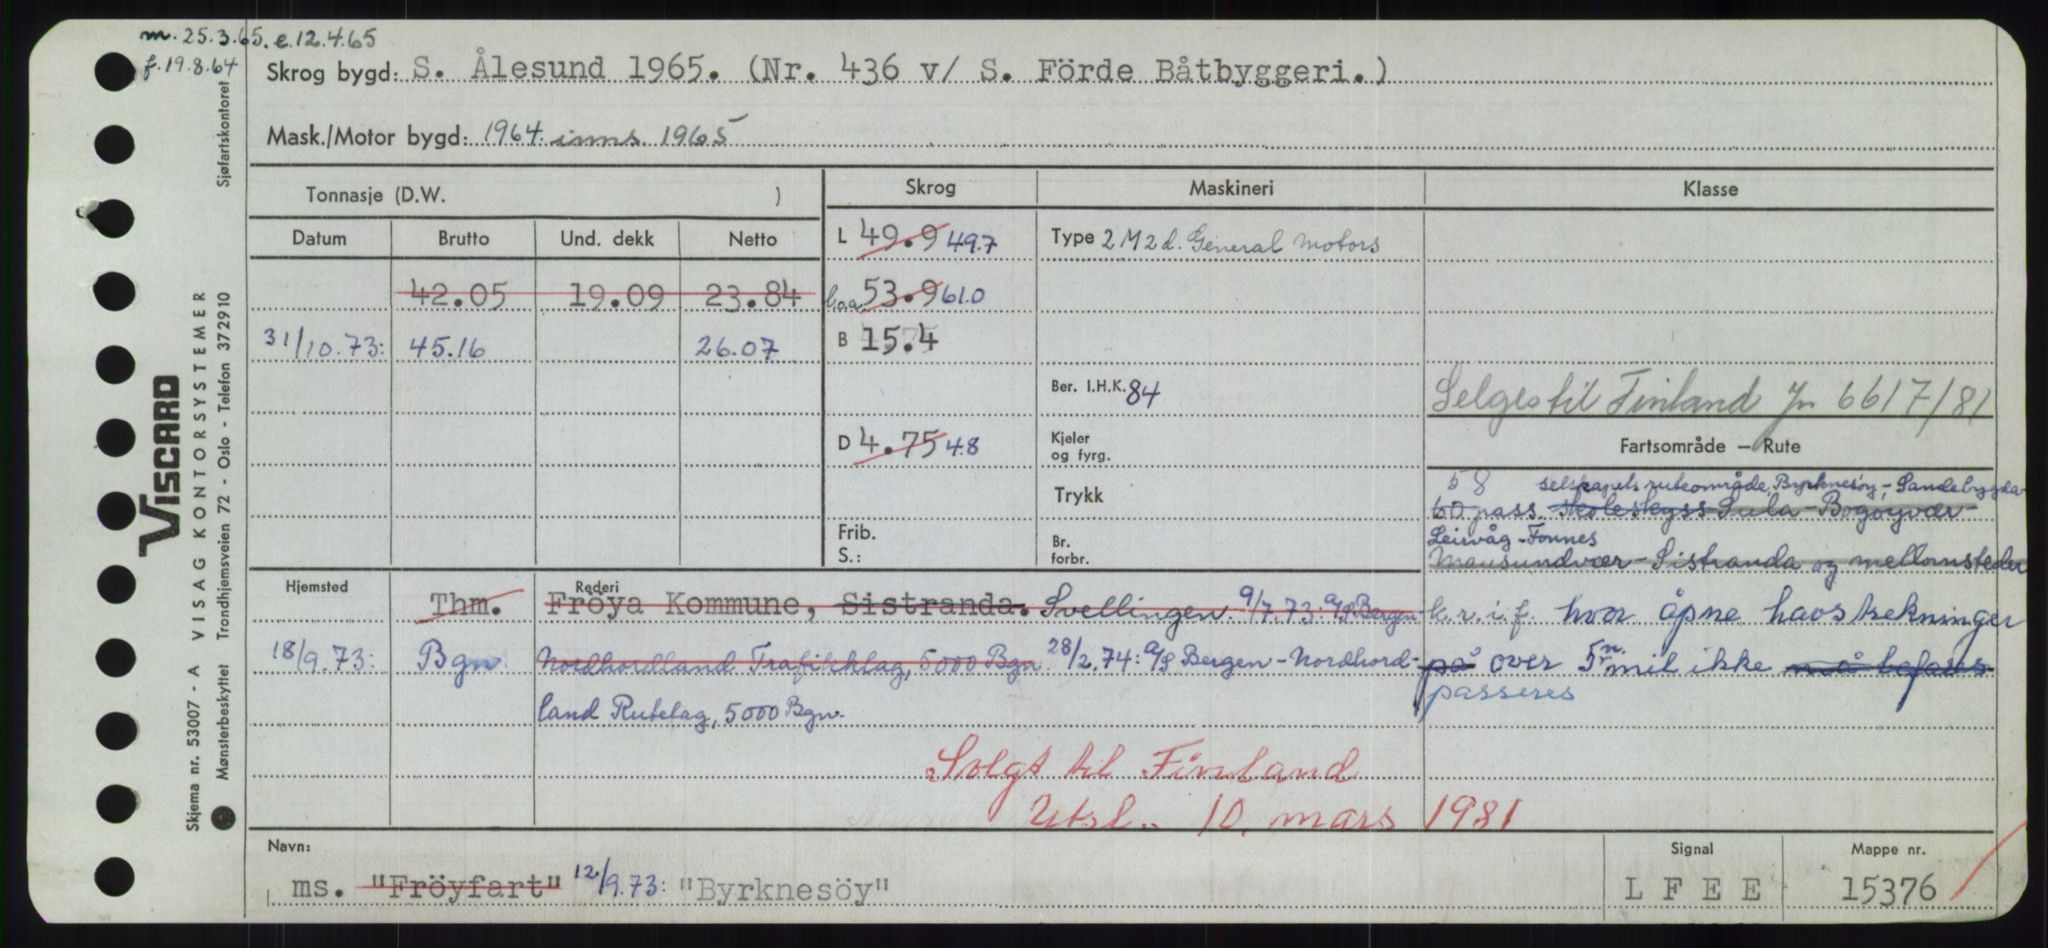 m. 25.3.65. e. 12.4.65
f. 19.8.64
Skrog bygd: S. Ålesund 1965. (Nr. 436 v/ S. Förde Båtbyggeri.)
Mask./Motor bygd: 1964. inns 1965
Tonnasje (D.W. )
Skrog
Maskineri
Klasse
Datum Brutto Und. dekk Netto
L 49.9 49.7
Type 2 M 2 d. General Motors
42.05 19.09 23.84
l.o.a. 53.9 61.0
31/10.73: 45.16 26.07
B 15.4
Ber. I.H.K. 84
Selges til Finland Jn 6617/81
D 4.75 4.8
Kjeler
og fyrg.
Fartsområde — Rute
Trykk
58 selskapets ruteområde, Byrknesöy - Sandebygda
60 pass. skoleskyss Sula - Bogöyvær
Frib.
S.:
Br.
forbr.
Leirvåg - Fonnes
Mausundvær - Sistranda og mellomsteder
Hjemsted
Rederi
Thm. Fröya Kommune, Sistranda. Svellingen. 9/7.73: A/S Bergen-
k.v.i.f. hvor åpne havstrekninger
18/9.73: Bgn Nordhordland Trafikklag, 5000 Bgn. 28/2.74: A/S Bergen - Nordhord-
på over 5 n. mil ikke må befares
passeres
land Rutelag, 5000 Bgn.
Solgt til Finland
Utsl.. 10. mars 1981
Navn:
Signal
Mappe nr.
ms. "Fröyfart" 12/9.73: "Byrknesöy"
L F E E
15376
Sjøfartskontoret
Skjema nr. 53007 - A VISAG KONTORSYSTEMER
Mønsterbeskyttet Trondhjemsveien 72 - Oslo - Telefon 372910
VISCARD